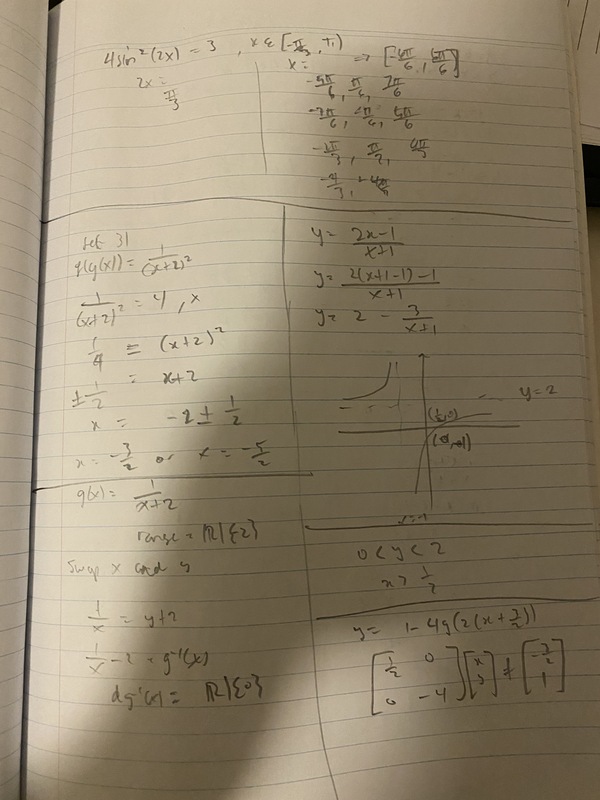 4sin²(2x) = 3 , x ∈ [-π/3, π)
2x =
π/3
x = ⇒ [-4π/6, 6π/6]
-5π/6, π/6, 7π/6
π/2
f(g(x)) = 1/(x+2)²
1/(x+2)² = 4, x
1/4 = (x+2)²
±1/2 = x+2
x = -2 ± 1/2
x = -3/2 or x = -5/2
g(x) = 1/x+2
range = ℝ|{2}
Swap x and y
1/x = y+2
1/x - 2 = g⁻¹(x)
dg⁻¹(x) = ℝ|{0}
y = 2x-1/x+1
y = 2(x+1-1)-1/x+1
y = 2 - 3/x+1
y = 2
(1/2, 0)
x=-1
0 < y < 2
x > 1/2
y = 1 - 4g(2(x + 3/2))
[1/2 0
0 -4] [x
y] + [-3/2
1]